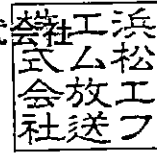 浜松エフ
エム放送
式会社